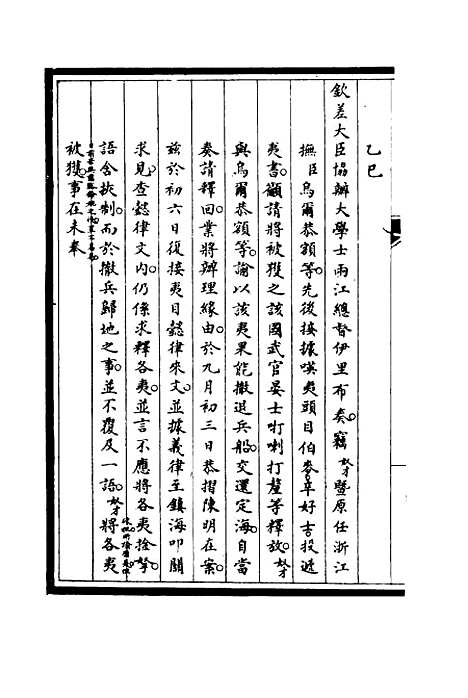 乙巳
欽差大臣協辦大學士兩江總督伊里布奏竊奴才暨原任浙江
撫臣烏爾恭額等先後接據嘆夷頭目伯麥辜好士投遞
夷書籲請將被獲之該國武官晏士叮喇打釐等釋放奴才
與烏爾恭額等諭以該夷果能撤退兵船交還定海自當
奏請釋回業將辦理緣由於九月初三日恭摺陳明在案
茲於初六日復接夷目懿律來文並據義律至鎮海叩關
求見查懿律文內仍係求釋各夷並言不應將各夷拴拏
語含挾制而於撤兵歸地之事並不覆及一語奴才將各夷
被獲事在未奉